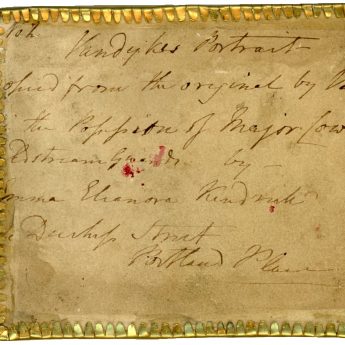 Vandykes Portrait
opied from the original by Va
in the Possession of Major Cow
ldstream Guards by
mma Eleanora Kendrick
Duchess Street
Portland Place